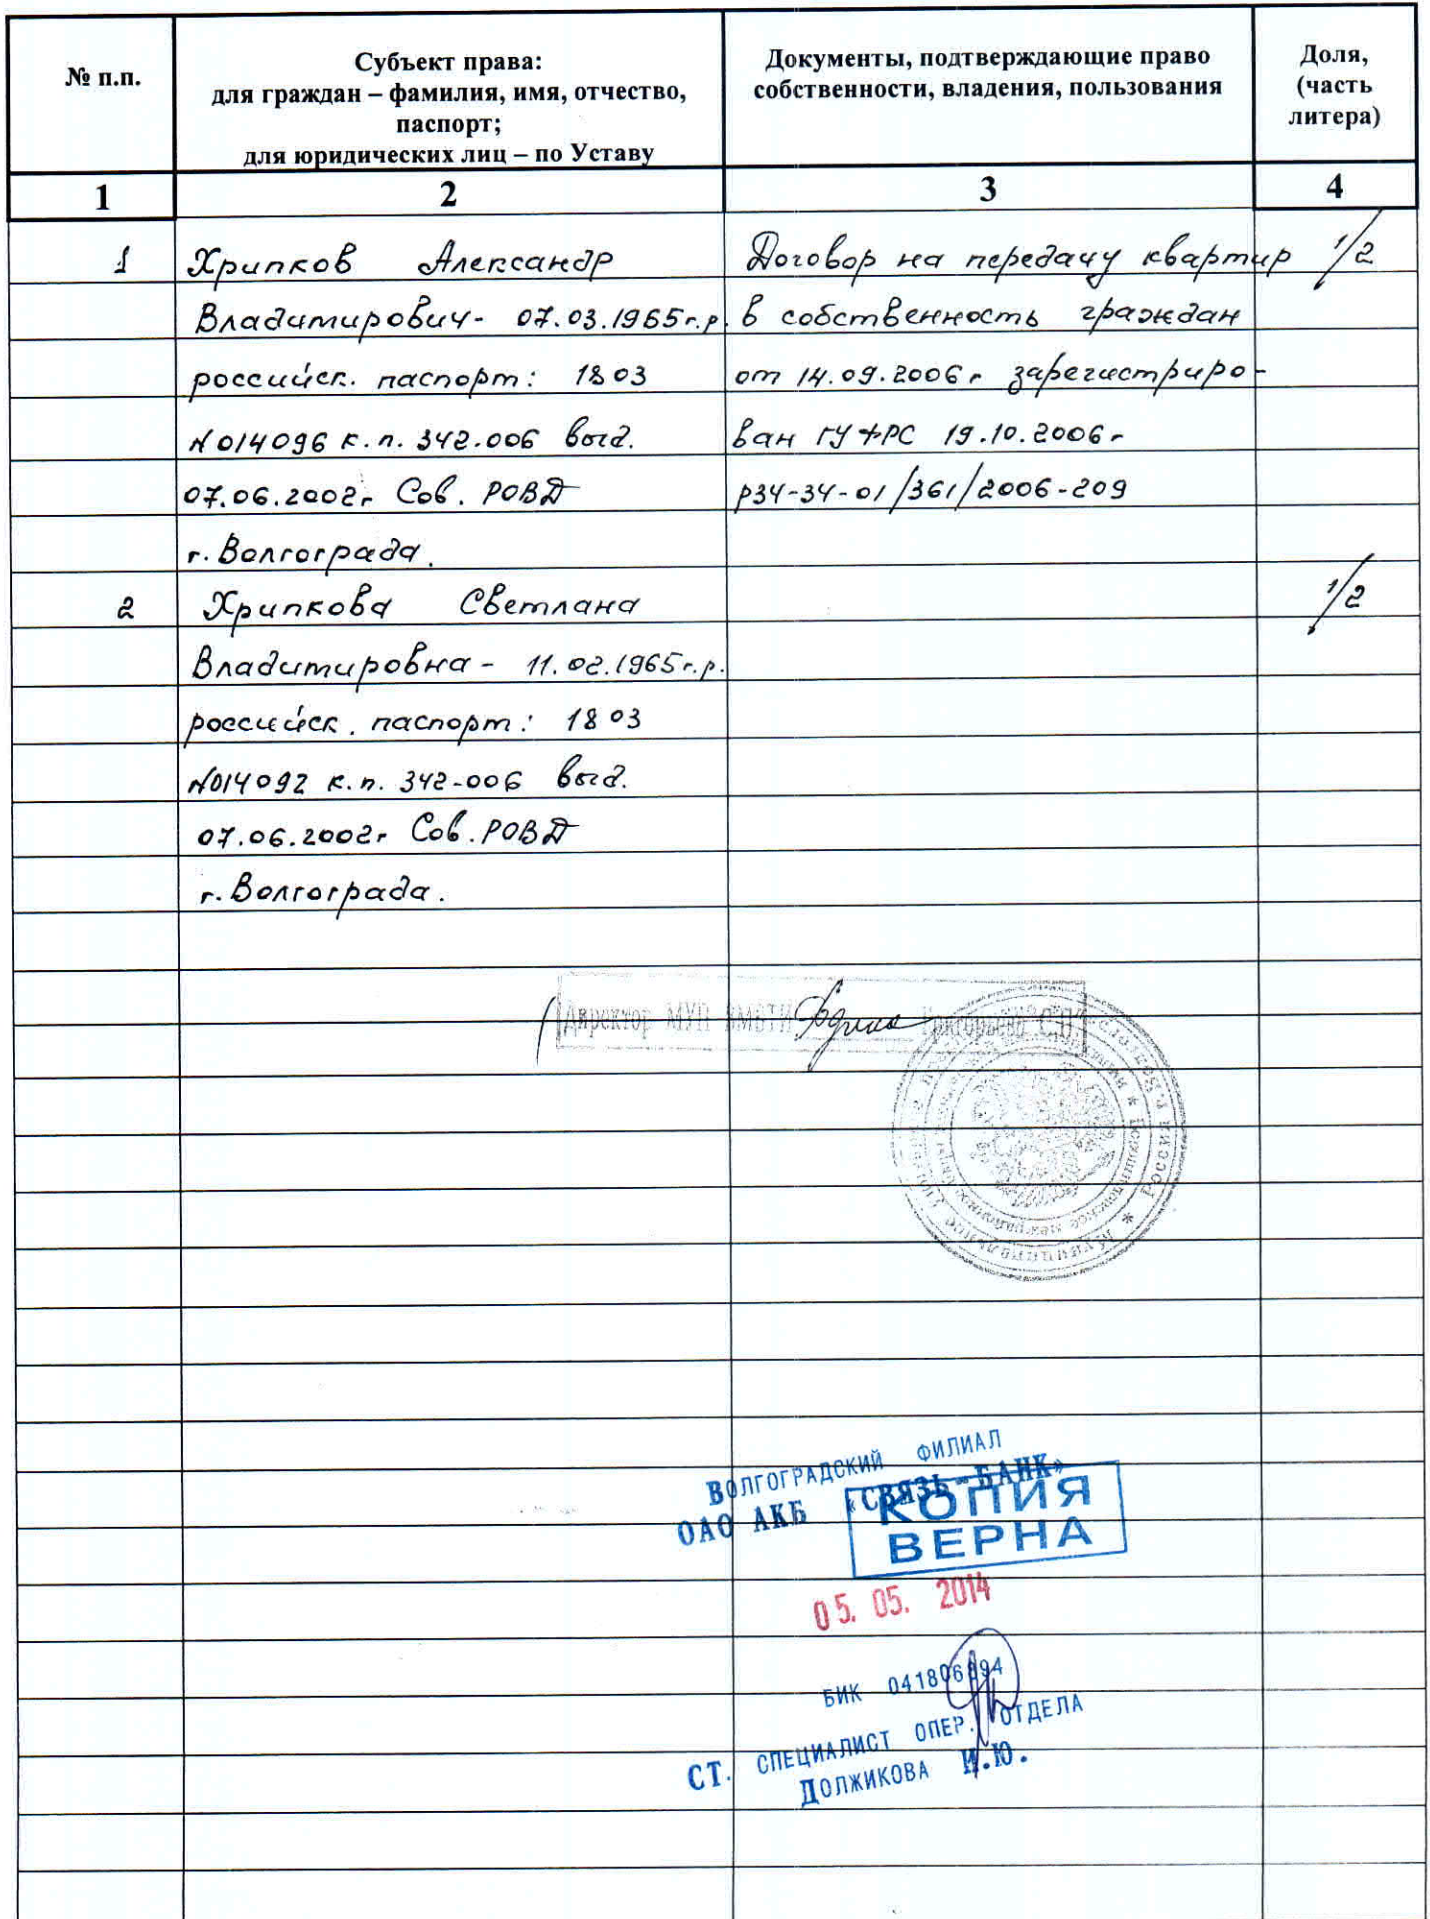 № п.п.
Субъект права:
для граждан – фамилия, имя, отчество,
паспорт;
для юридических лиц – по Уставу
Документы, подтверждающие право
собственности, владения, пользования
Доля,
(часть
литера)
1 2 3 4
1 Хрипков Александр Договор на передачу квартир 1/2
Владимирович- 07.03.1965г.р. в собственность граждан
российск. паспорт: 1803 от 14.09.2006г зарегистриро-
N014096 к.п. 342.006 выд. ван ГУФРС 19.10.2006г
07.06.2002г Сов. РОВД р34-34-01/361/2006-209
г. Волгограда.
2 Хрипкова Светлана 1/2
Владимировна - 11.02.1965г.р.
российск. паспорт: 1803
N014092 к.п. 342-006 выд.
07.06.2002г Сов. РОВД
г. Волгограда.
Директор МУП
ВОЛГОГРАДСКИЙ ФИЛИАЛ
ОАО АКБ «СВЯЗЬ-БАНК»
КОПИЯ
ВЕРНА
05. 05. 2014
БИК 041806894
СТ. СПЕЦИАЛИСТ ОПЕР. ОТДЕЛА
ДОЛЖИКОВА И.Ю.